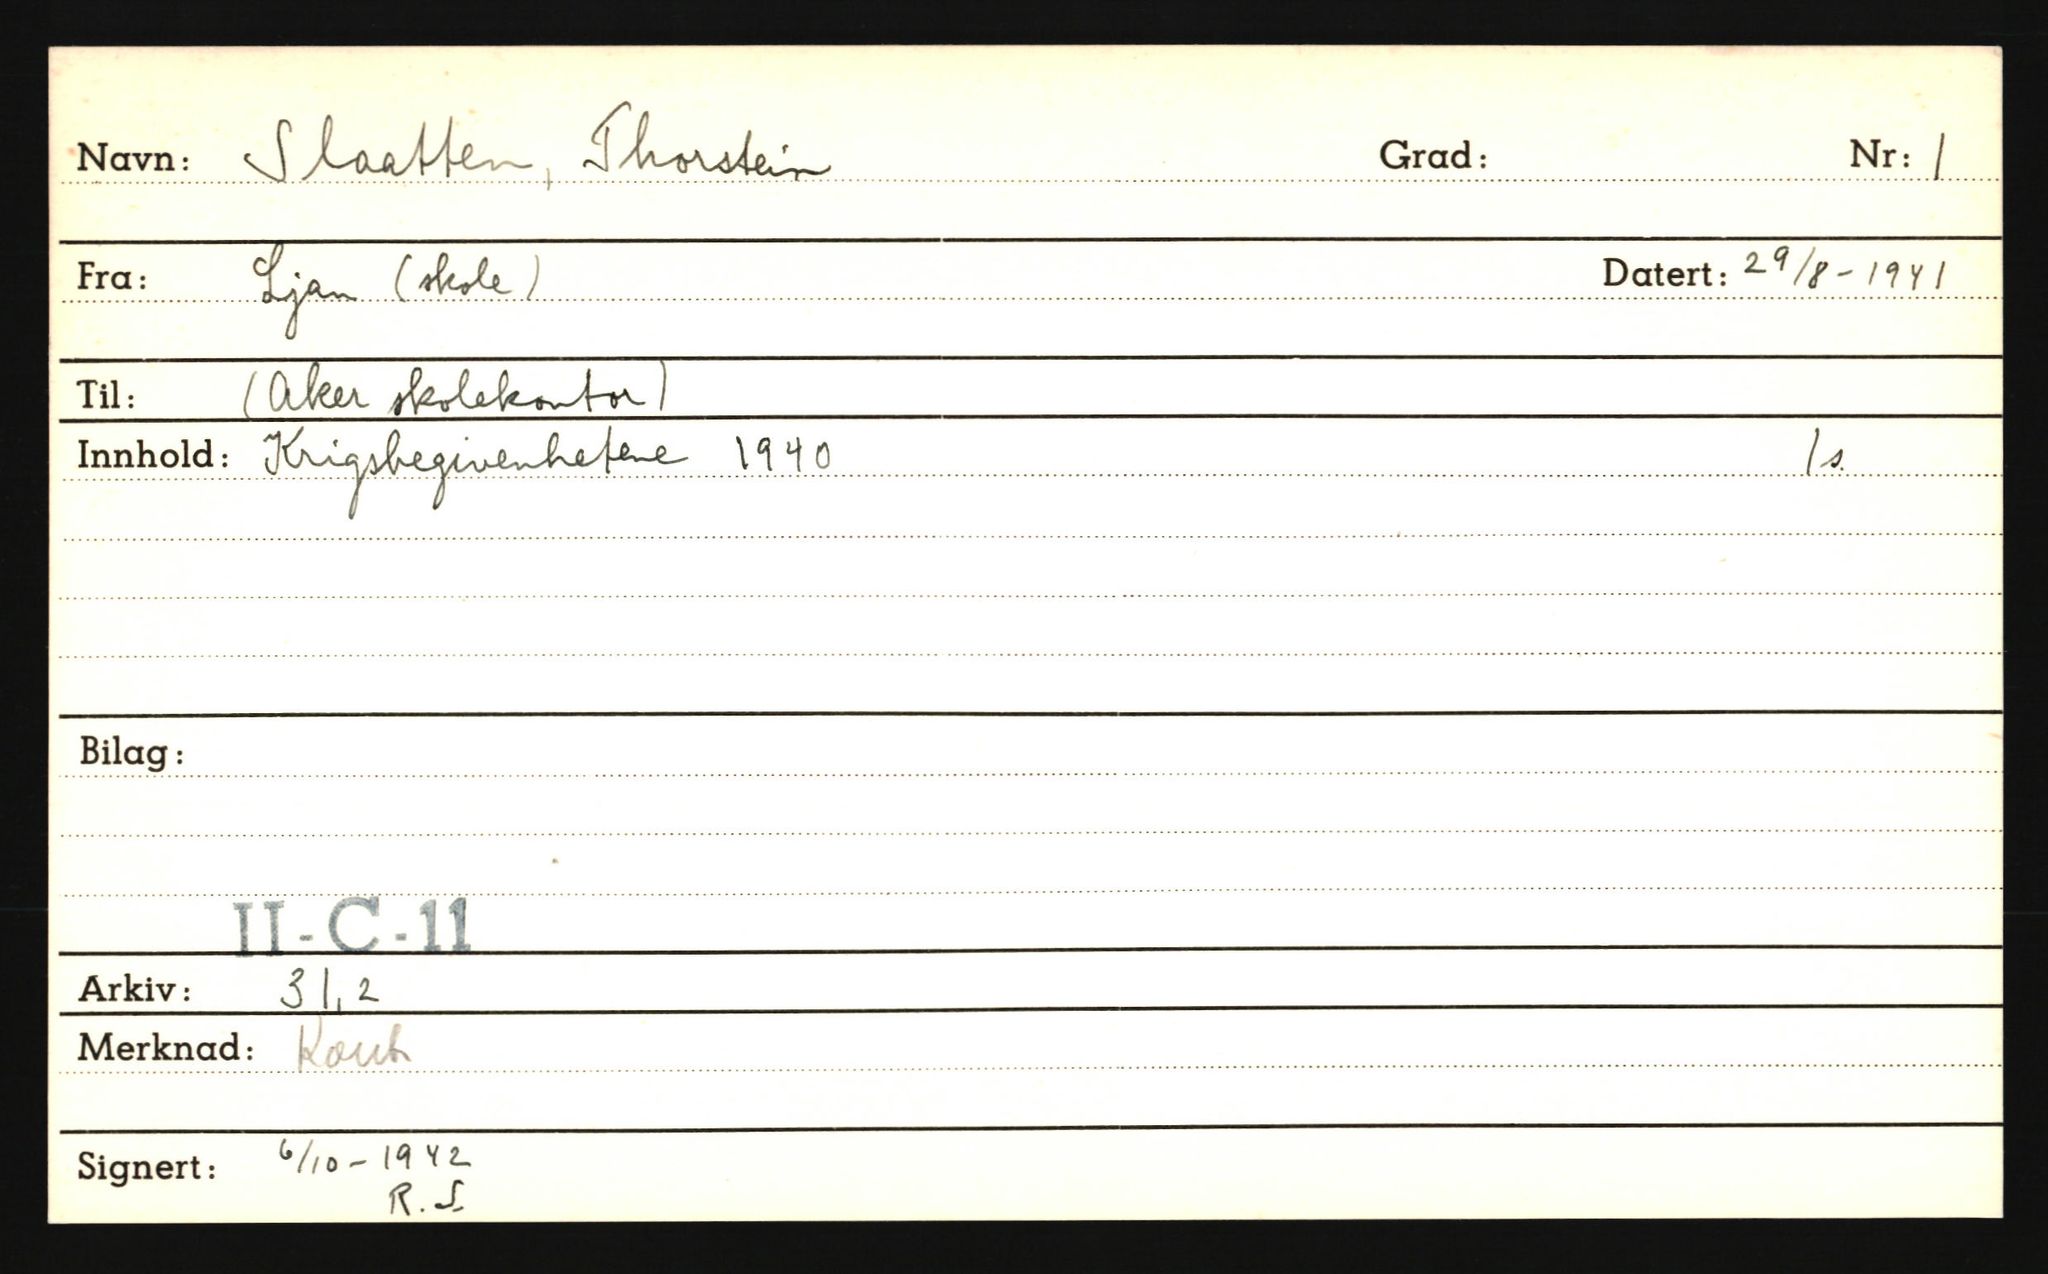 Navn: Slaatten, Thorstein Grad: Nr: 1
Fra: Ljan (skole) Datert: 29/8-1941
Til: (Aker skolekontor)
Innhold: Krigsbegivenhetene 1940 1 s.
Bilag:
II-C-11
Arkiv: 31,2
Merknad:
Signert: 6/10-1942
R.S.